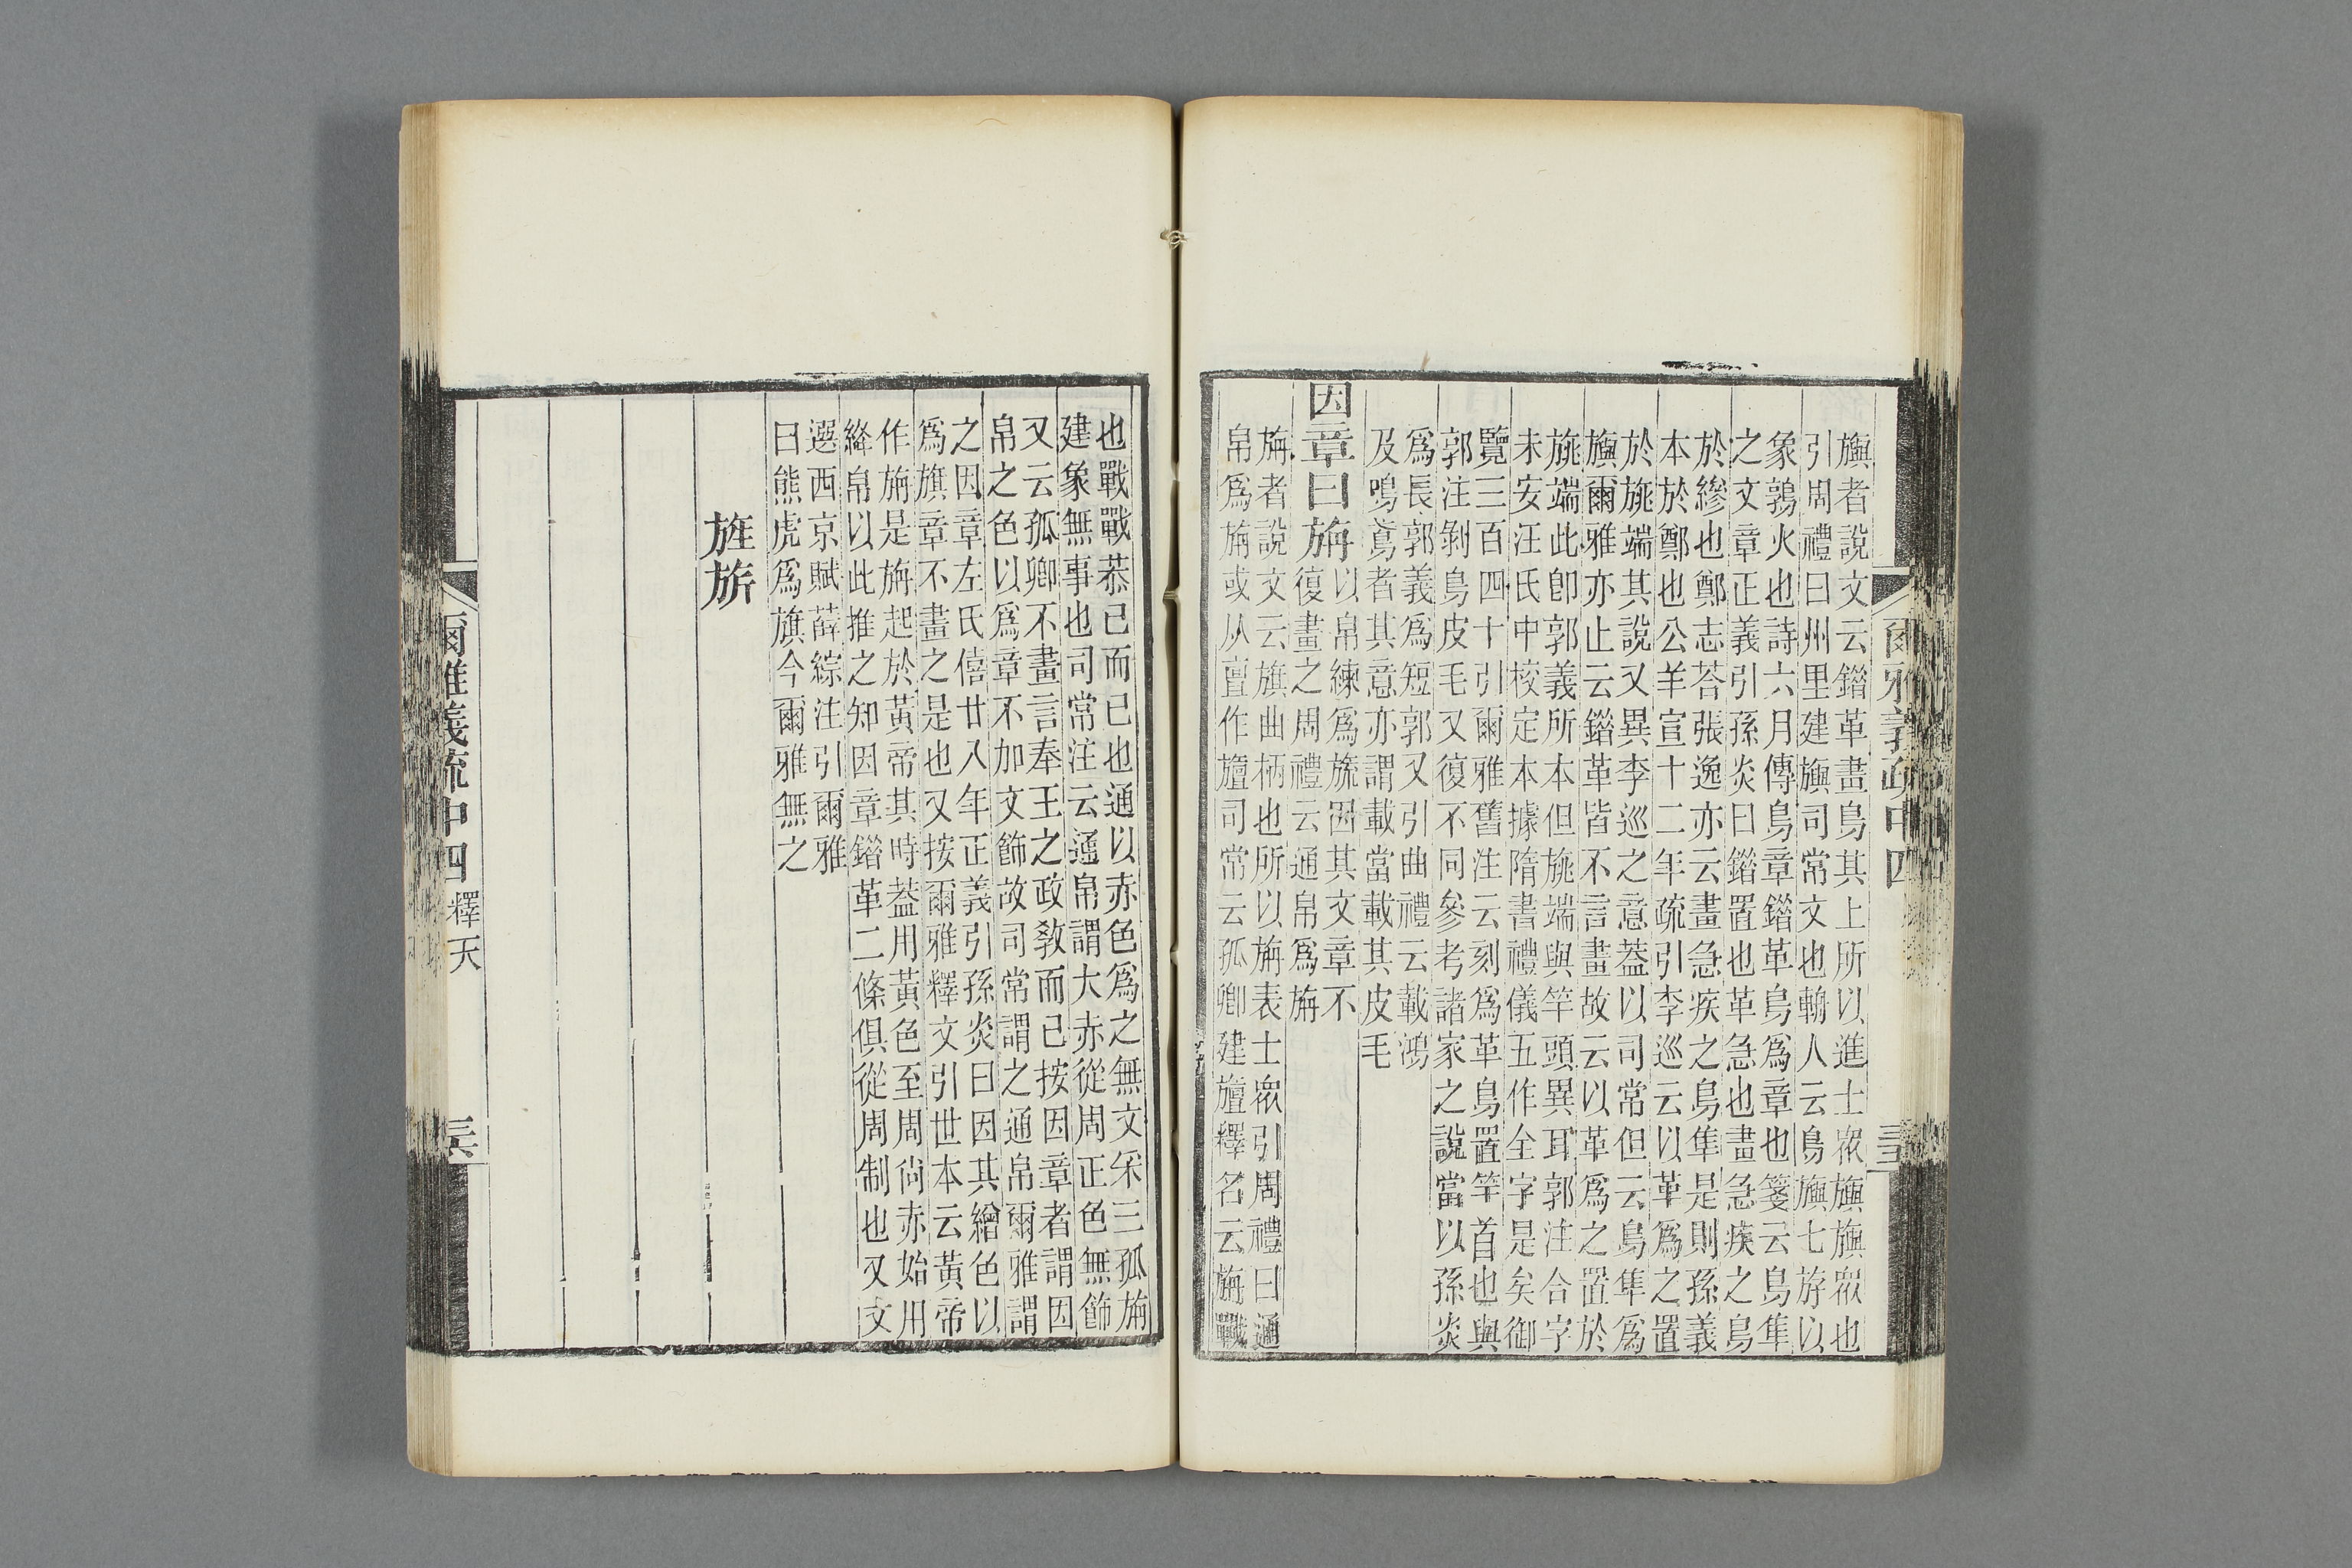 旟者說文云錯革畫鳥其上所以進士衆旟旟衆也
引周禮曰州里建旟司常文也輈人云鳥旟七斿以
象鶉火也詩六月傳鳥章錯革鳥爲章也箋云鳥隼
之文章正義引孫炎曰錯置也革急也畫急疾之鳥
於縿也鄭志荅張逸亦云畫急疾之鳥隼是則孫義
本於鄭也公羊宣十二年疏引李巡云以革爲之置
於旐端其說又異李巡之意蓋以司常但云鳥隼爲
旟爾雅亦止云錯革皆不言畫故云以革爲之置於
旐端此卽郭義所本但旐端與竿頭異耳郭注合字
未安汪氏中校定本據隋書禮儀五作全字是矣御
覽三百四十引爾雅舊注云刻爲革鳥置竿首也與
郭注剝鳥皮毛又復不同參考諸家之說當以孫炎
爲長郭義爲短郭又引曲禮云載鴻
及鳴鳶者其意亦謂載當載其皮毛
因章曰旃
以帛練爲旒因其文章不
復畫之周禮云通帛爲旃
旃者說文云旗曲柄也所以旃表士衆引周禮曰通
帛爲旃或从亶作旜司常云孤卿建旜釋名云旃戰
爾雅義疏中四
也戰戰恭己而已也通以赤色爲之無文采三孤旃
建象無事也司常注云通帛謂大赤從周正色無飾
又云孤卿不畫言奉王之政敎而已按因章者謂因
帛之色以爲章不加文飾故司常謂之通帛爾雅謂
之因章左氏僖廿八年正義引孫炎曰因其繒色以
爲旗章不畫之是也又按爾雅釋文引世本云黃帝
作旃是旃起於黃帝其時蓋用黃色至周尙赤始用
絳帛以此推之知因章錯革二條俱從周制也又文
選西京賦薛綜注引爾雅
曰熊虎爲旗今爾雅無之
旌旂
爾雅義疏中四 釋天